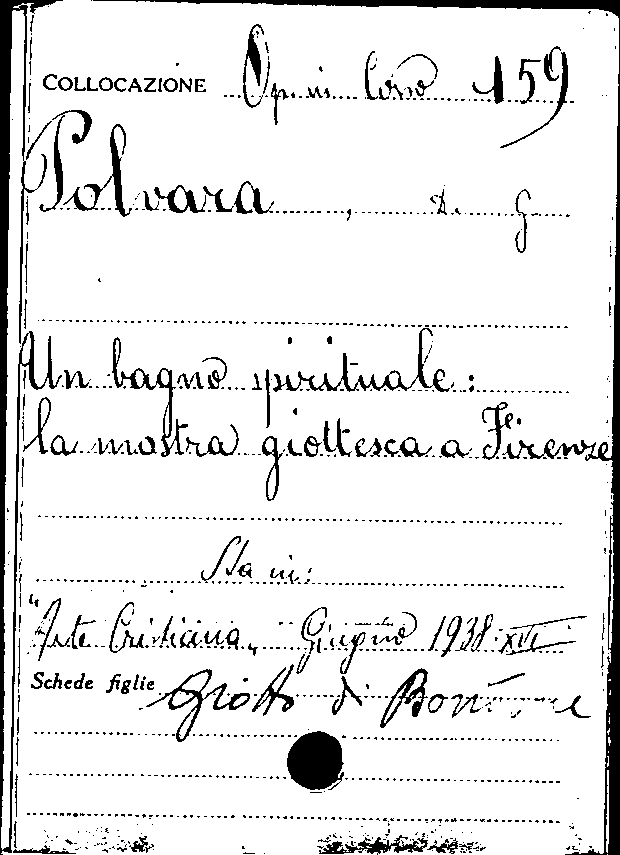 COLLOCAZIONE Op. in Corso 159
Polvara, D. G
Un bagno spirituale:
la mostra giottesca a Firenze
Sta in:
"Arte Cristiana„ Giugno 1938. XVI
Schede figlie Giotto di Bondone